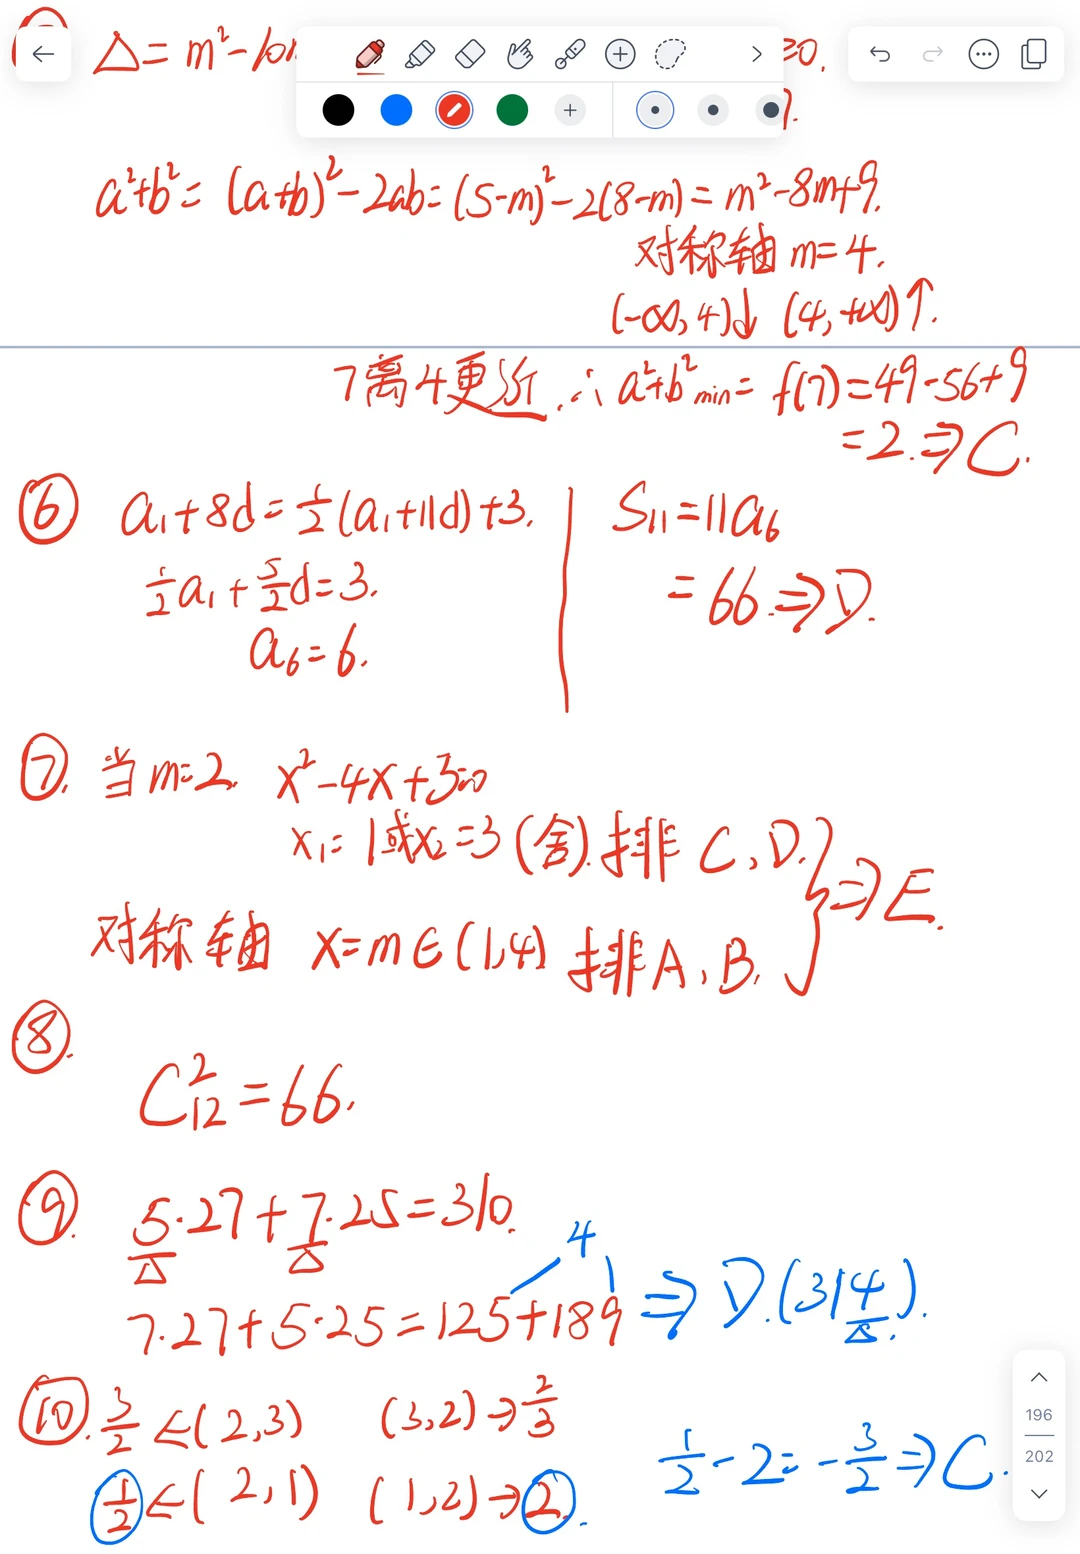 △= m²-10m
≥0.
a²+b²= (a+b)²-2ab= (5-m)²-2(8-m)= m²-8m+9.
对称轴 m=4.
(-∞,4)↓ (4,+∞)↑.
7离4更近.∴ a²+b² min= f(7)=49-56+9
=2.⇒C.
⑥ a₁+8d=½(a₁+11d)+3.
½a₁+5/2d=3.
a₆=6.
S₁₁=11a₆
=66.⇒D.
⑦. 当m=2. x²-4x+3=0
x₁=1或x₂=3(舍).排 C、D.
⇒E.
对称轴 x=m∈(1,4) 排A、B.
⑧.
C²₁₂=66.
⑨. 5·27+7·25=310.
△ △
4
7·27+5·25=125+189 ⇒ D.(314).
△
⑩. 3/2 ←(2,3) (3,2)→2/3
1/2←(2,1) (1,2)→2.
1/2-2=-3/2⇒C.
196
202